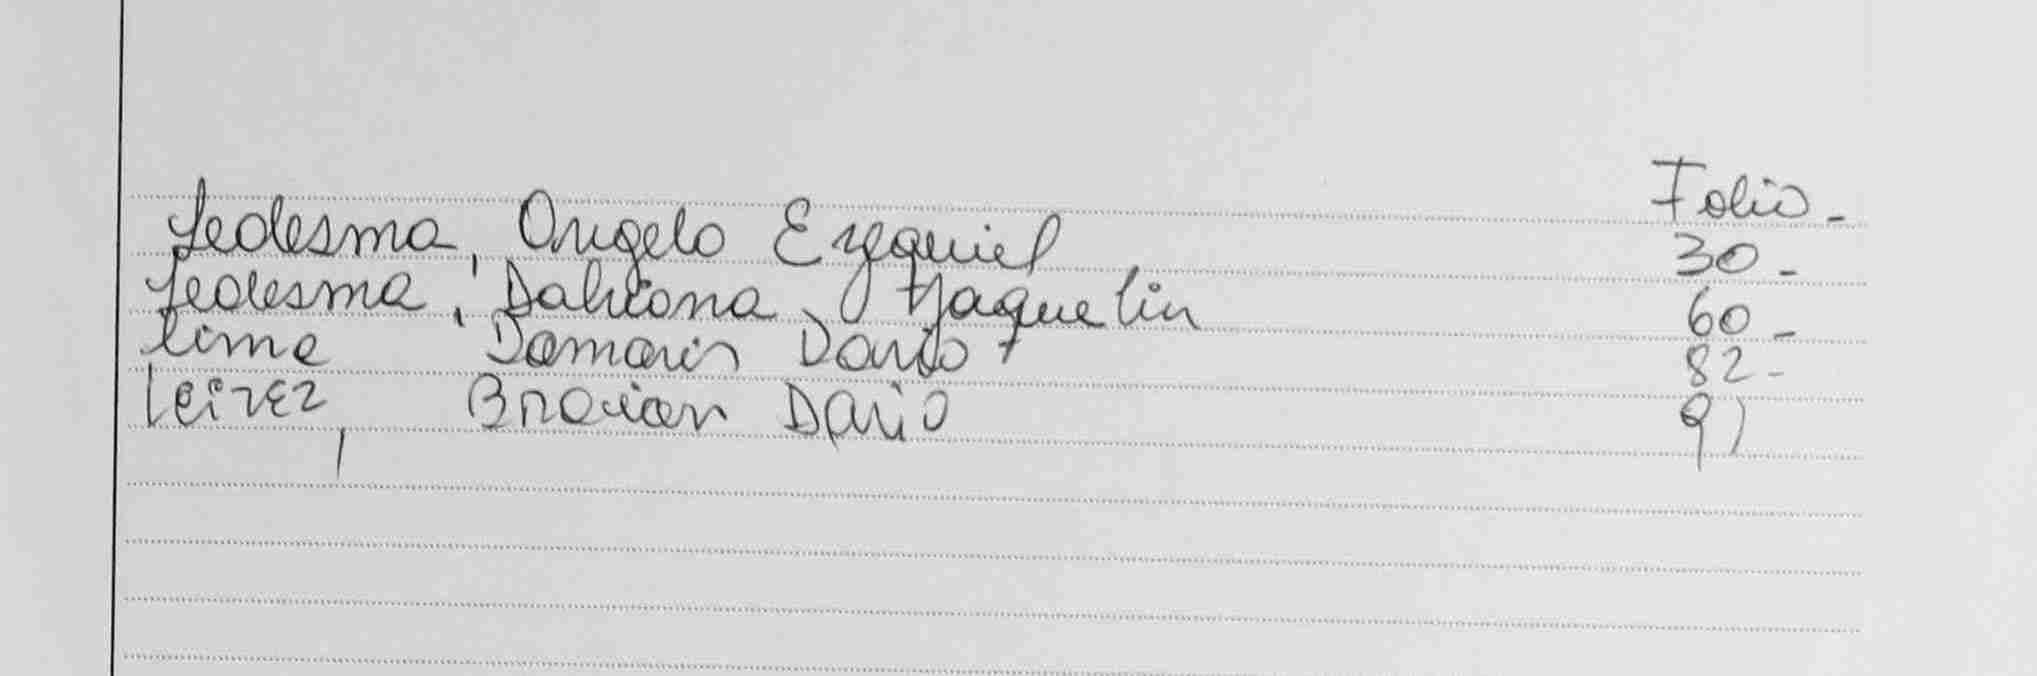 Folio -
Ledesma, Angelo Ezequiel 30 -
Ledesma, Yaquelin 60 -
Lima Damaris 82 -
Leirez, Braian Dario 91